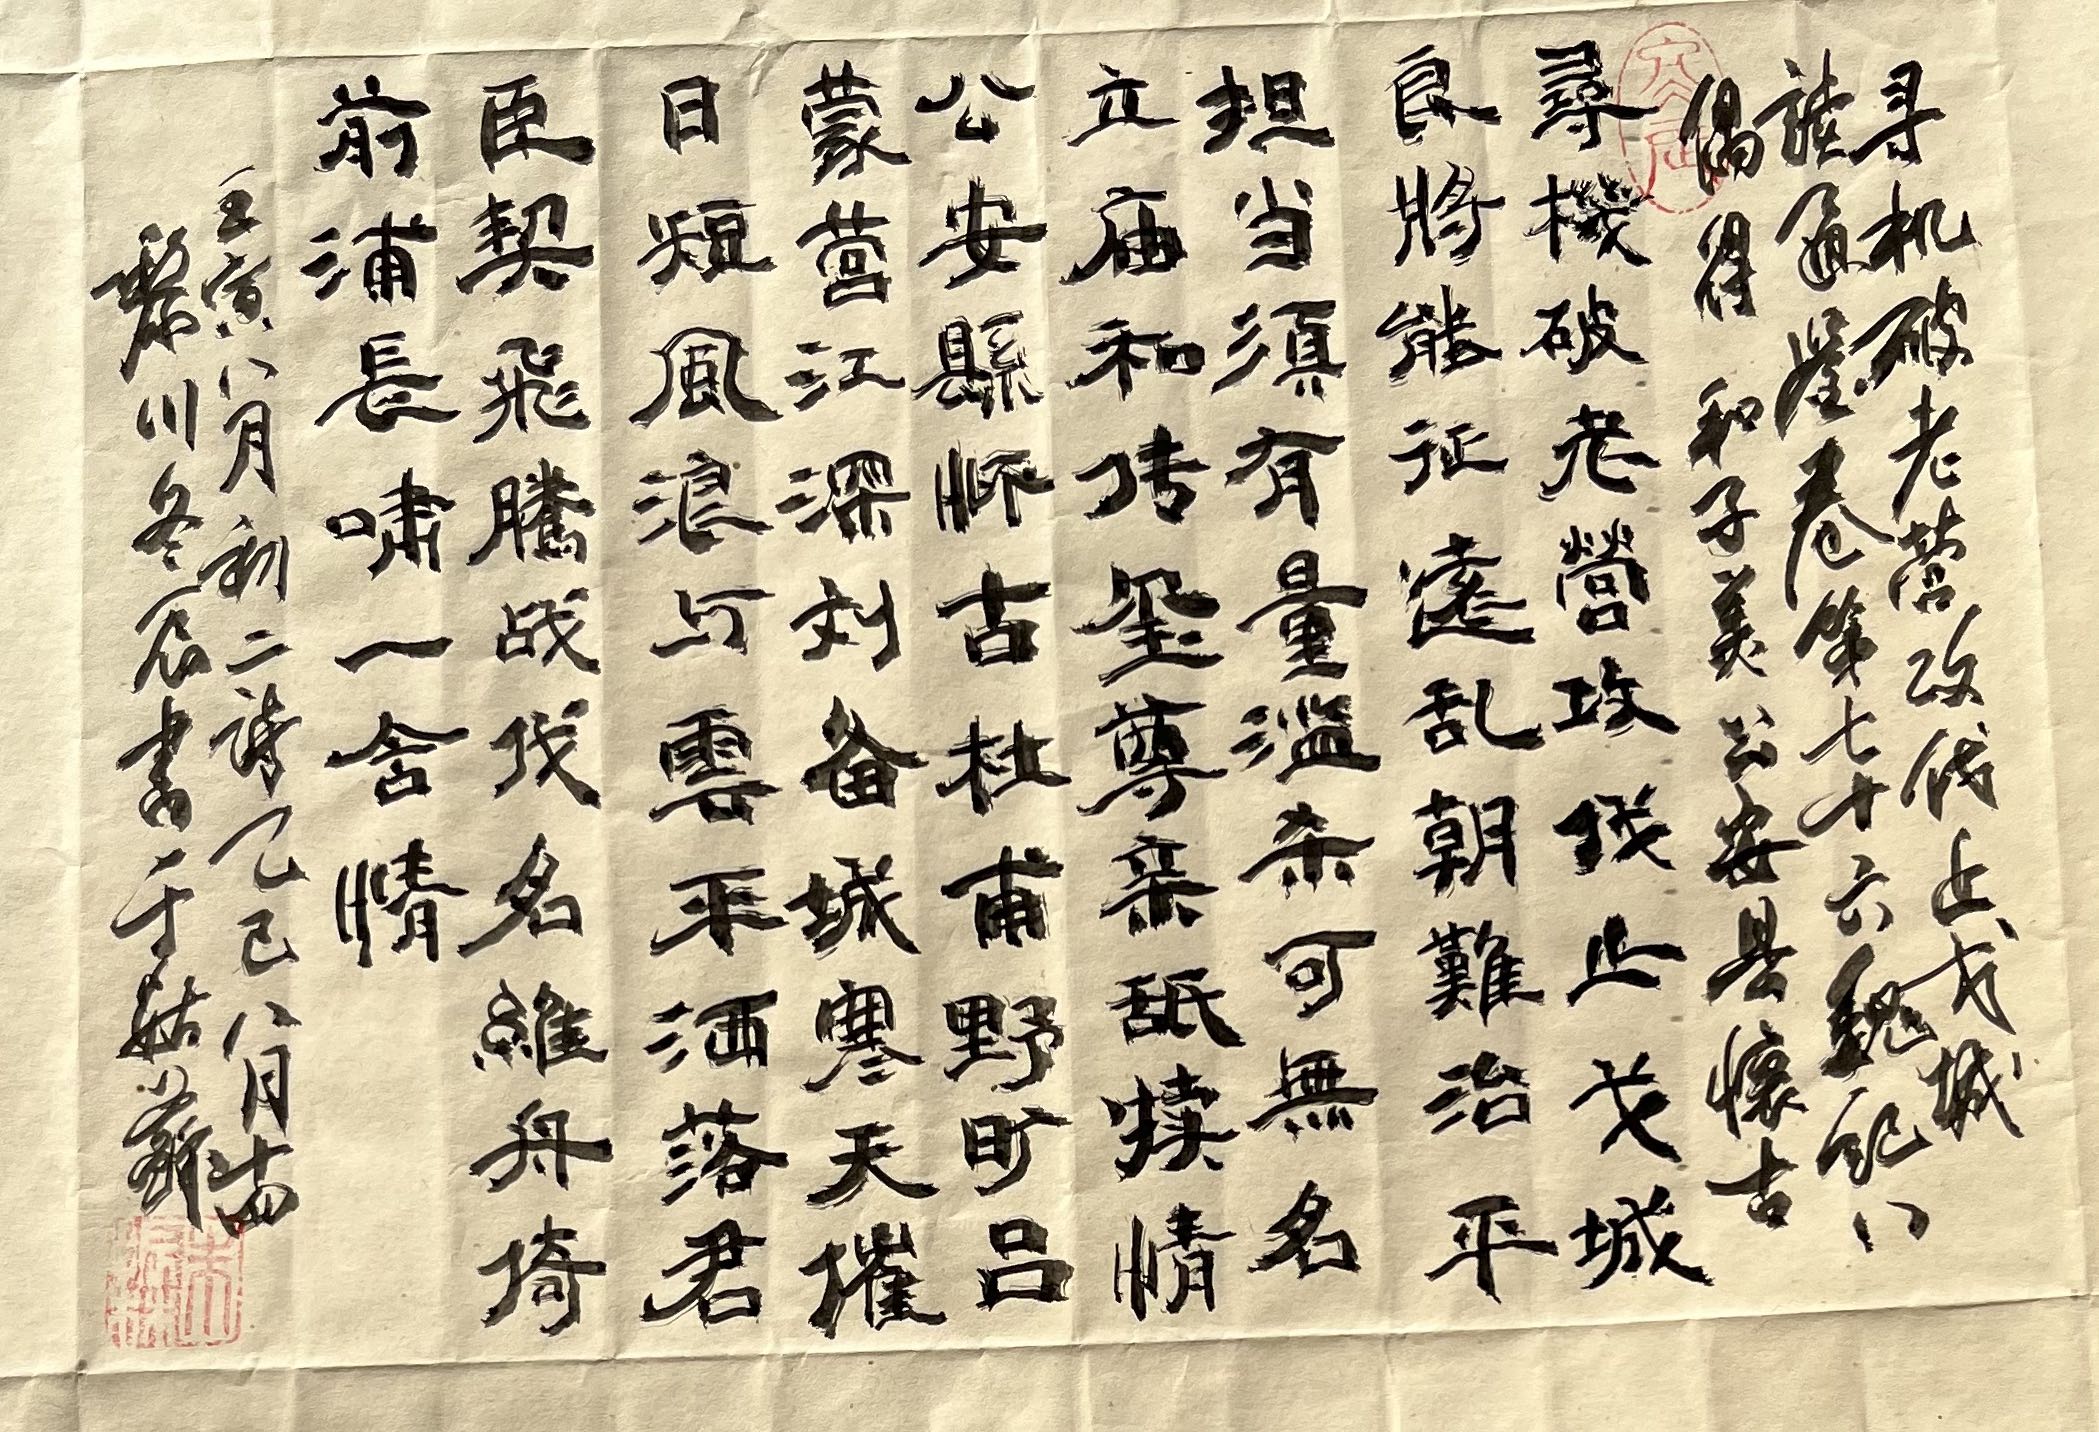 寻机破老营攻伐止戈城
读通鉴卷第七十六魏纪八
偶得 和子美公安县怀古
尋機破老營攻伐止戈城
良將能征遠乱朝難治平
担当须有量滥杀可無名
立庙和传圣尊亲舐犊情
公安縣怀古杜甫野旷吕
蒙营江深刘备城寒天催
日短風浪与雲平洒落君
臣契飛騰战伐名維舟倚
前浦長啸一含情
壬寅八月初二诗乙巳八月十四
川冬辰书于姑蘇